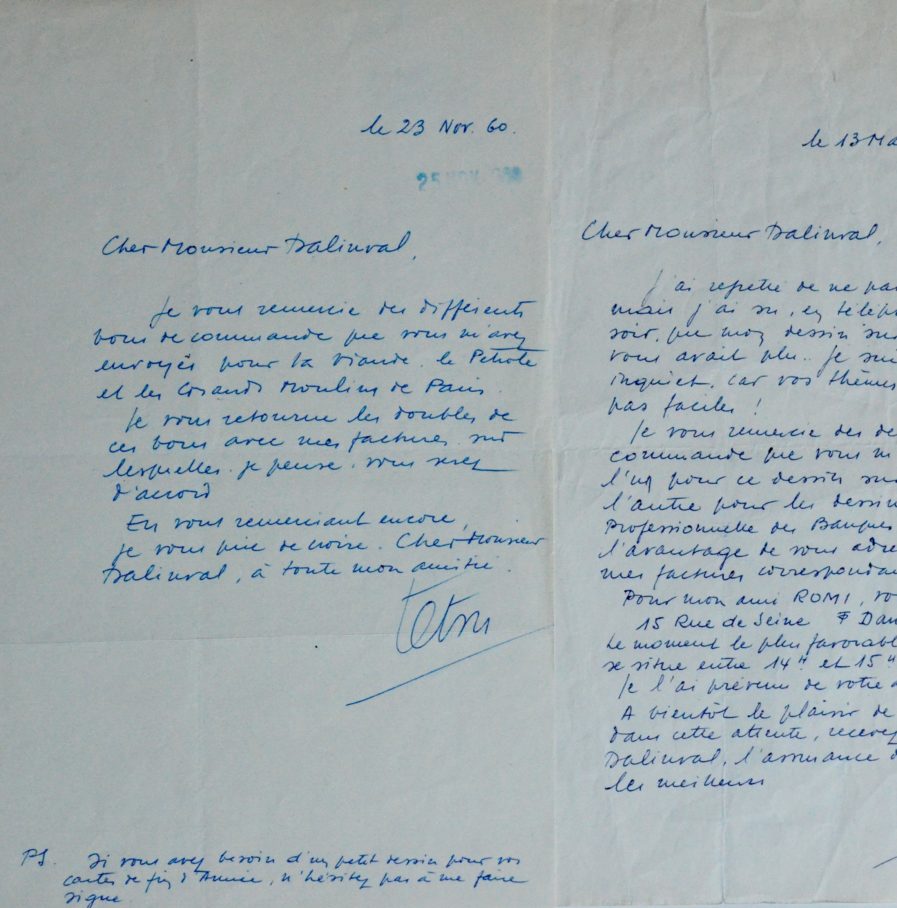 le 23 Nov. 60.
25 NOV. 1960
Cher Monsieur Dalinval,
Je vous remercie des différents
bons de commande que vous m'avez
envoyés pour la Viande, le Pétrole
et les Grands Moulins de Paris.
Je vous retourne les doubles de
ces bons avec mes factures sur
lesquelles, je pense, vous serez
d'accord
En vous remerciant encore,
je vous prie de croire, Cher Monsieur
Dalinval, à toute mon amitié.
Tetsu
PS. Si vous avez besoin d'un petit dessin pour vos
cartes de fin d'Année, n'hésitez pas à me faire
signe.
le 13 Ma
Cher Monsieur Dalinval,
J'ai regretté de ne pas
mais j'ai su, en télép
soir, que mon dessin sur
vous avait plu.. Je sui
inquiet, car vos thèmes
pas faciles !
Je vous remercie des de
commande que vous m
l'un pour ce dessin su
l'autre pour les dessin
Professionnelle des Banques
l'avantage de vous adre
mes factures correspondan
Pour mon ami ROMI, vo
15 Rue de Seine Dan
Le moment le plus favorable
se situe entre 14H et 15H
Je l'ai prévenu de votre
A bientôt le plaisir de
dans cette attente, recevez
Dalinval, l'assurance d
les meilleurs